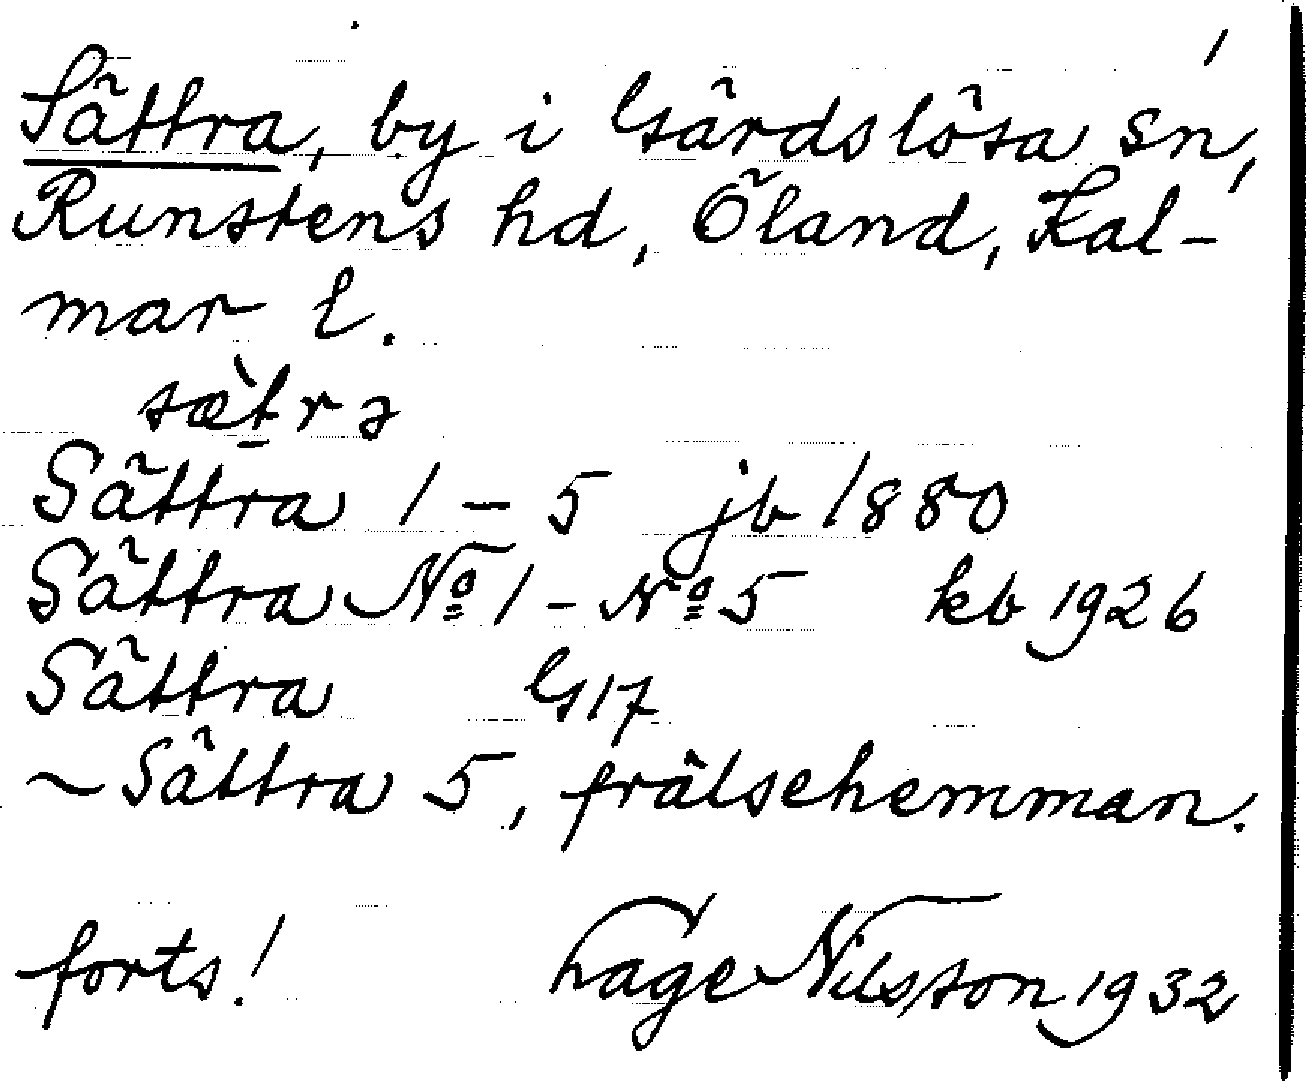 1
Sättra, by i Gärdslösa sn,
Runstens hd, Öland, Kal-
mar l.
sæ̀t̠rə
Sättra 1 - 5 jb 1880
Sättra Nº 1 - Nº 5 kb 1926
Sättra G17
~ Sättra 5, frälsehemman.
forts! Hage Nilsson 1932